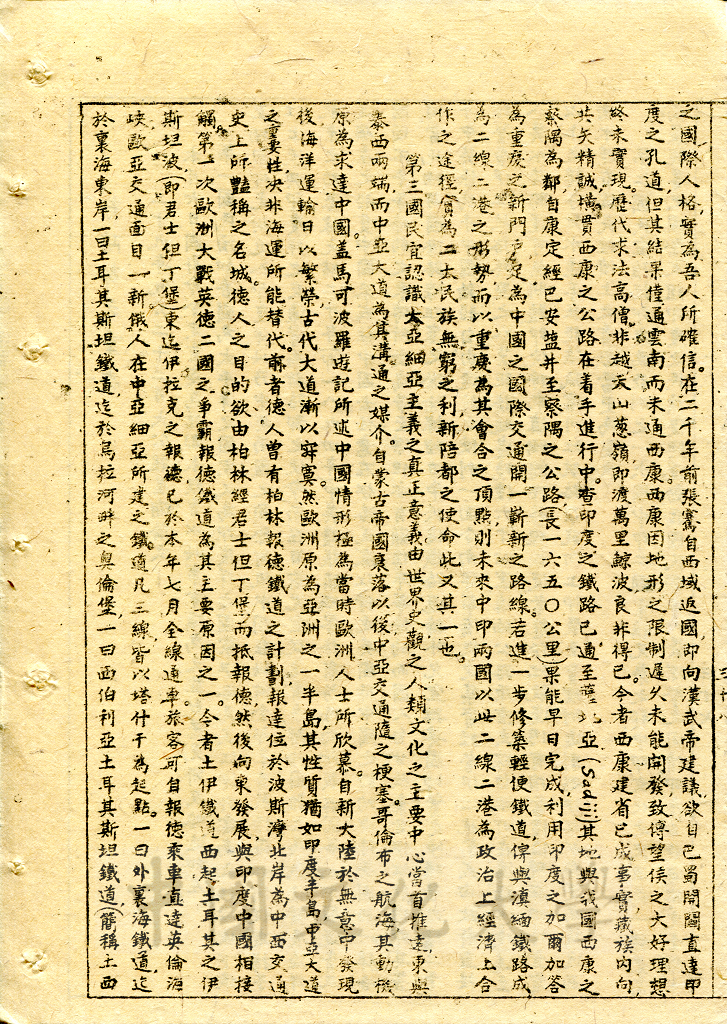 之國際人格實為吾人所確信。在二千年前張騫自西域返國，即向漢武帝建議，欲自巴蜀開闢直達印
度之孔道，但其結果僅通雲南而未通西康。西康因地形之限制，遲久未能開發，致博望侯之大好理想
終未實現。歷代求法高僧，非越天山葱嶺，即渡萬里鯨波，良非得已。今者西康建省已成事實，藏族內向，
共矢精誠，橫貫西康之公路在着手進行中。查印度之鐵路已通至薩地亞(Sadij)其地與我國西康之
察隅為鄰，自康定經巴安鹽井至察隅之公路(長一六五〇公里)果能早日完成，利用印度之加爾加答
為重慶之新門戶，足為中國之國際交通開一嶄新之路線。若進一步修築輕便鐵道，俾與滇緬鐵路成
為二線二港之形勢，而以重慶為其會合之頂點，則未來中印兩國以此二線二港為政治上經濟上合
作之途徑，實為二大民族無窮之利，新陪都之使命此又其一也。
第三國民宜認識大亞細亞主義之真正意義，由世界史觀之人類文化之主要中心當首推遠東與
泰西兩端，而中亞大道為其溝通之媒介。自蒙古帝國衰落以後中亞交通隨之梗塞，哥倫布之航海其動機
原為求達中國。蓋馬可波羅遊記所述中國情形極為當時歐洲人士所欣慕。自新大陸於無意中發現
後，海洋運輸日以繁榮，古代大道漸以寂寞。然歐洲原為亞洲之一半島，其性質猶如印度半島，中亞大道
之重要性決非海運所能替代。前者德人曾有柏林報德鐵道之計劃，報達位於波斯灣北岸為中西交通
史上所豔稱之名城。德人之目的欲由柏林經君士但丁堡而抵報德，然後向東發展，與印度中國相接
觸。第一次歐洲大戰英德二國之爭霸報德鐵道為其主要原因之一。今者土伊鐵道西起土耳其之伊
斯坦波，(即君士但丁堡)東迄伊拉克之報德，已於本年七月全線通車。旅客可自報德乘車直達英倫海
峽，歐亞交通面目一新。俄人在中亞細亞所建之鐵道凡三線皆以塔什干為起點。一曰外裏海鐵道，迄
於裏海東岸，一曰土耳其斯坦鐵道，迄於烏拉河畔之奧倫堡，一曰西伯利亞土耳其斯坦鐵道，(簡稱土西